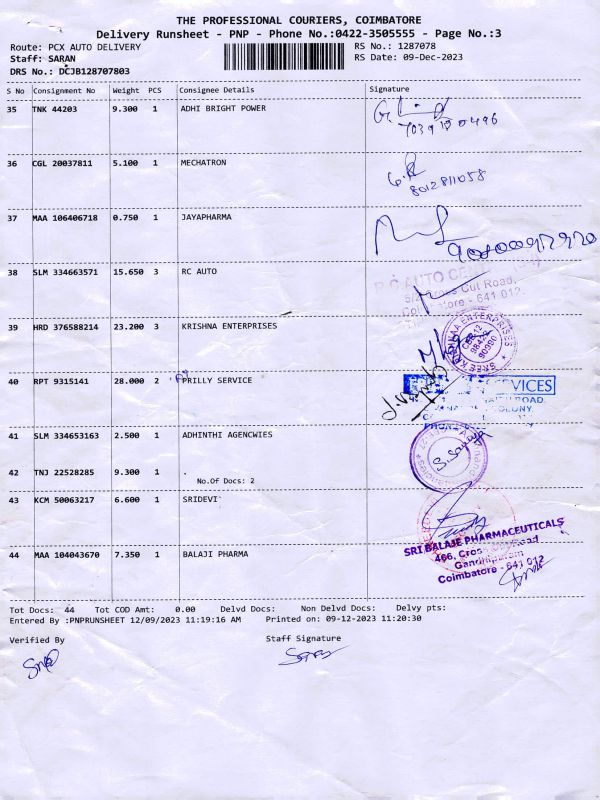 THE PROFESSIONAL COURIERS, COIMBATORE
Delivery Runsheet - PNP - Phone No.:0422-3505555 - Page No.:3
Route: PCX AUTO DELIVERY
RS No.: 1287078
Staff: SARAN
RS Date: 09-Dec-2023
DRS No.: DCJB128707803
S No Consignment No Weight PCS Consignee Details Signature
35 TNK 44203 9.300 1 ADHI BRIGHT POWER
36 CGL 20037811 5.100 1 MECHATRON
8012811058
37 MAA 106406718 0.750 1 JAYAPHARMA
38 SLM 334663571 15.650 3 RC AUTO
R C AUTO
Cut Road,
641 012
39 HRD 376588214 23.200 3 KRISHNA ENTERPRISES
SREE KRISHNAA ENTERPRISES
40 RPT 9315141 28.000 2 PRILLY SERVICE
SERVICES
ROAD.
41 SLM 334653163 2.500 1 ADHINTHI AGENCWIES
42 TNJ 22528285 9.300 1 .
No.Of Docs: 2
43 KCM 50063217 6.600 1 SRIDEVI
44 MAA 104043670 7.350 1 BALAJI PHARMA
SRI BALAJE PHARMACEUTICALS
466, Cross Road
Gandhipuram
Coimbatore - 641 012
Tot Docs: 44 Tot COD Amt: 0.00 Delvd Docs: Non Delvd Docs: Delvy pts:
Entered By :PNPRUNSHEET 12/09/2023 11:19:16 AM Printed on: 09-12-2023 11:20:30
Verified By Staff Signature